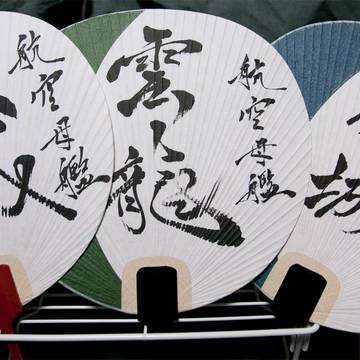 航空母艦
雲龍
航空母艦